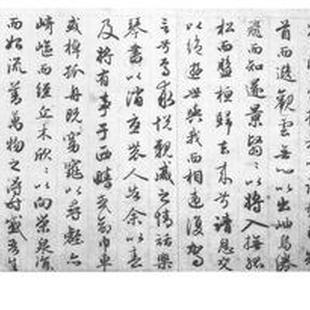 首而遐觀雲無心以出岫鳥倦
飛而知還景翳〻以將入撫孤
松而盤桓歸去來兮請息交
以絕遊世與我而相遺復駕
言兮焉求悅親戚之情話樂
琴書以消憂農人告余以春
及將有事于西疇或命巾車
或棹孤舟既窈窕以尋壑亦
崎嶇而經丘木欣〻以向榮泉涓〻
而始流善萬物之得時感吾生